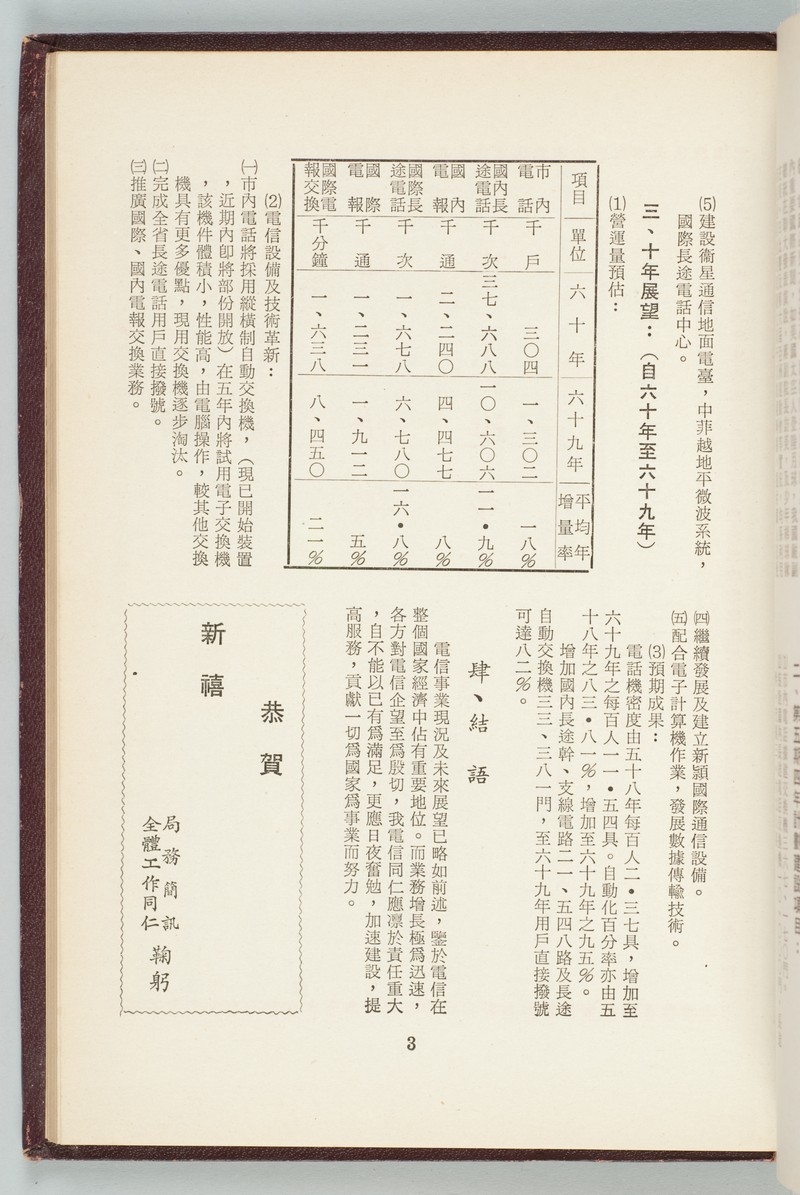 ⑸建設衛星通信地面電臺，中菲越地平微波系統，
國際長途電話中心。
三、十年展望：（自六十年至六十九年）
⑴營運量預估：
項目 單位 六十年 六十九年 平均年增量率
市內電話 千戶 三〇四 一、三〇二 一八％
國內長途電話 千次 三七、六八八 一〇、六〇六 一一•九％
國內電報 千通 二、二四〇 四、四七七 八％
國際長途電話 千次 一、六七八 六、七八〇 一六•八％
國際電報 千通 一、二三一 一、九一二 五％
國際電報交換 千分鐘 一、六三八 八、四五〇 二一％
⑵電信設備及技術革新：
㈠市內電話將採用縱橫制自動交換機，（現已開始裝置
，近期內卽將部份開放）在五年內將試用電子交換機
，該機件體積小，性能高，由電腦操作，較其他交換
機具有更多優點，現用交換機逐步淘汰。
㈡完成全省長途電話用戶直接撥號。
㈢推廣國際、國內電報交換業務。
㈣繼續發展及建立新穎國際通信設備。
㈤配合電子計算機作業，發展數據傳輸技術。
⑶預期成果：
電話機密度由五十八年每百人二•三七具，增加至
六十九年之每百人一一•五四具。自動化百分率亦由五
十八年之八三•八一％，增加至六十九年之九五％。
增加國內長途幹、支線電路二一、五四八路及長途
自動交換機三三、三八一門，至六十九年用戶直接撥號
可達八二％。
肆、結語
電信事業現況及未來展望已略如前述，鑒於電信在
整個國家經濟中佔有重要地位。而業務增長極爲迅速，
各方對電信企望至爲殷切，我電信同仁應凛於責任重大
，自不能以已有爲滿足，更應日夜奮勉，加速建設，提
高服務，貢獻一切爲國家爲事業而努力。
恭賀
新禧
局務簡訊
全體工作同仁
鞠躬
3